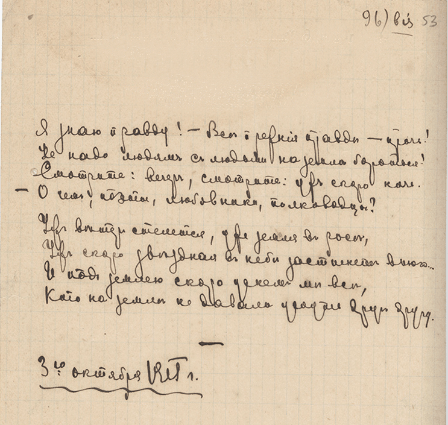 96) 53
Я знаю правду! — Всѣ прежнія правды — прочь!
Не надо людямъ съ людьми на землѣ бороться!
Смотрите: вечеръ, смотрите: ужъ скоро ночь.
О чемъ, поэты, любовники, полководцы?
Ужъ вѣтеръ стелется, уже земля въ росѣ,
Ужъ скоро звѣздная въ небѣ застынетъ вьюга...
И подъ землею скоро уснемъ мы всѣ,
Кто на землѣ не давали уснуть другъ другу.
3го октября 1915 г.